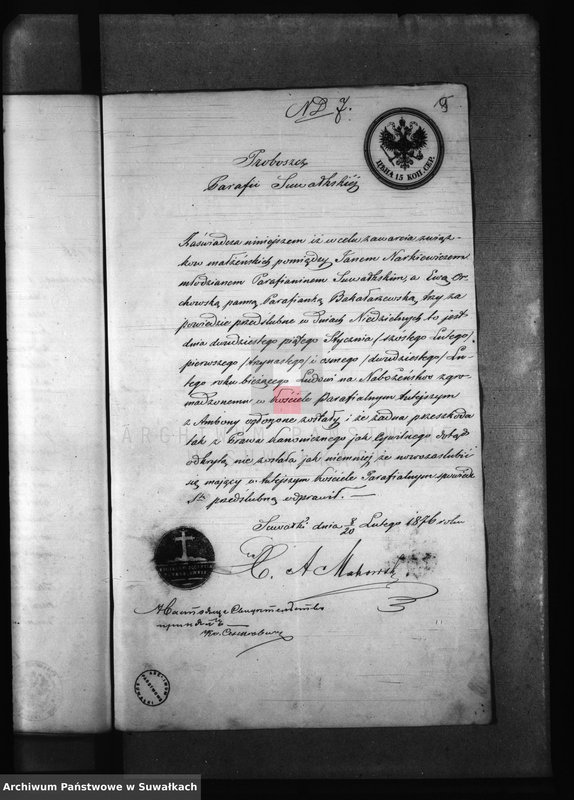 ND 7.
5
ЦѢНА 15 КОП. СЕР.
Proboszcz
Parafii Suwałkskiéj
Zaświadcza niniejszem iż w celu zawarcia związ-
ków małżeńskich pomiędzy Janem Narkiewiczem
młodzianem Parafianinem Suwałkskim, a Ewą Or-
chowską panną Parafianką Bakałarzewską, trzy za
powiedzie przedślubne w dniach Niedzielnych, to jest
dnia dwudziestego piątego Stycznia /szóstego Lutego/
pierwszego /trzynastego/ i ósmego /dwudziestego/ Lu-
tego roku bieżącego Ludowi na Nabożeństwo zgro-
madzonemu w kościele Parafialnym tutejszym
z Ambony ogłoszone zostały i że żadna przeszkoda
tak z Prawa kanonicznego jak Cywilnego dotąd
odkrytą nie została jak niemniej że nowozaślubić
się mający w tutejszym kościele Parafialnym spowiedź
Stą przedślubną odprawili.
Suwałki dnia 8/20 Lutego 1876 roku
X. A Makowski
Archiwum Państwowe w Suwałkach